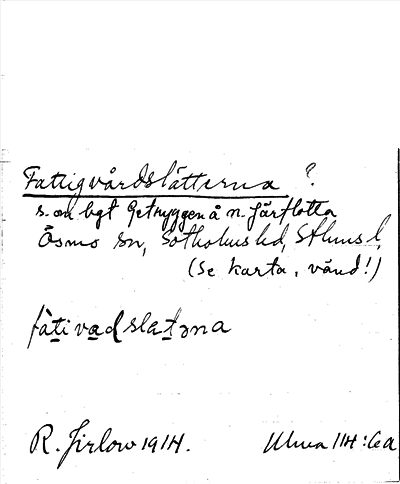 Fattigvårdslätterna ?
s. om bgt Getryggen å n. Järflotta
Ösmo sn, Sotholms hd, Sthlms l,
(Se karta, vänd!)
fàtivadslatəna
R. Jirlow 1914.